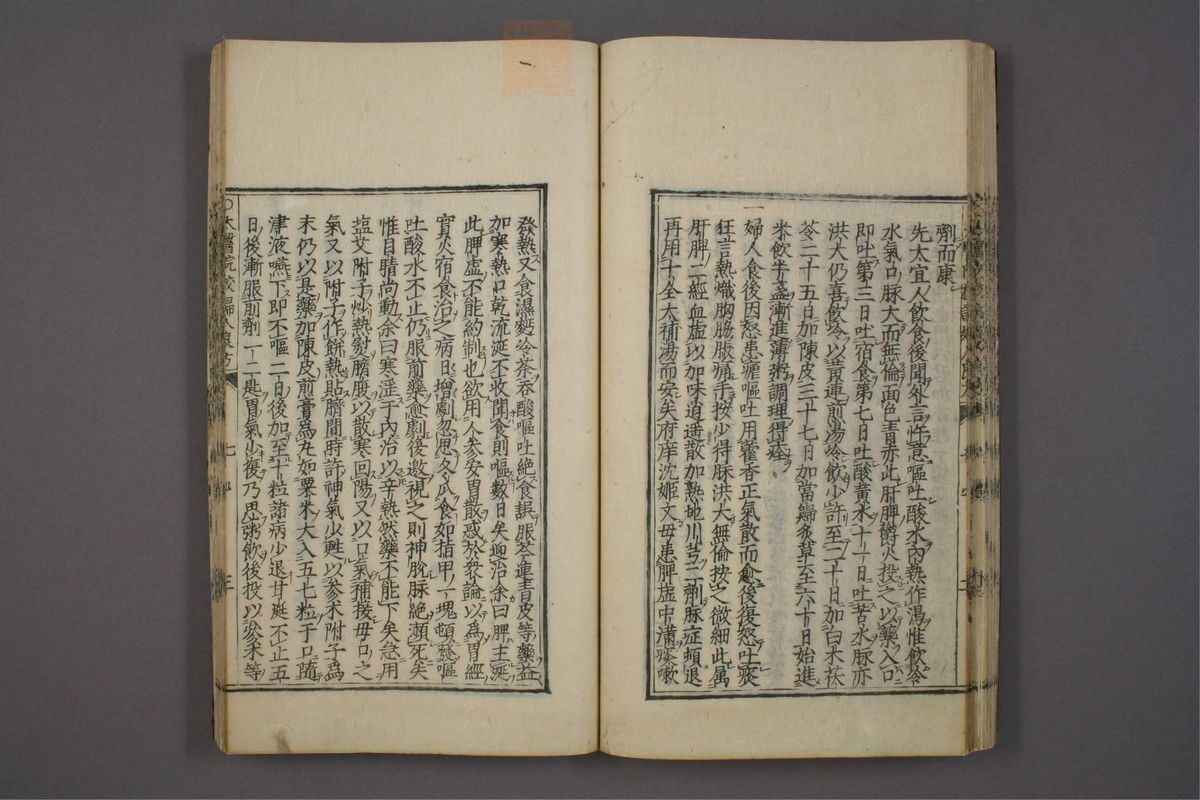 劑而康
先太宜人飲食後聞外言忤意嘔吐酸水内熱作渴惟飲冷
水氣口脉大而無倫面色青赤此肝脾鬱火投之以藥入口
即吐第三日吐宿食第七日吐酸黄水十一日吐苦水脉亦
洪大仍喜飲冷以黄連煎湯冷飲少許至二十日加白术茯
苓二十五日加陳皮三十七日加當歸炙草至六十日始進
米飲半盞漸進薄粥調理得痊
一婦人食後因怒患瘧嘔吐用藿香正氣散而愈後復怒吐痰
狂言熱熾胸脇脹痛手按少得脉洪大無倫按之微細此属
肝脾二經血虚以加味逍遥散加熟地川芎二劑脉症頓退
再用十全大補湯而安矣府庠沈姬文母患脾虚中滿痰嗽
發熱又食濕麪冷茶吞酸嘔吐絶食誤服芩連青皮等藥益
加寒熱口乾流涎不收聞食則嘔數日矣迎治余曰脾主涎
此脾虚不能約制也欲用人参安胃散惑於衆論以爲胃經
實火宿食治之病日增劇忽思冬瓜食如指甲一塊頓發嘔
吐酸水不止仍服前藥愈劇後邀視之則神脱脉絶瀕死矣
惟目睛尚動余曰寒淫于内治以辛熱然藥不能下矣急用
塩艾附子炒熱熨臍腹以散寒回陽又以口氣補接母口之
氣又以附子作餅熱貼臍間時許神氣少甦以参术附子爲
末仍以是藥加陳皮煎膏爲丸如粟米大入五七粒于口隨
津液嚥下即不嘔二日後加至十粒諸病少退甘涎不止五
日後漸服前劑一二匙胃氣少復乃思粥飲後投以参术等
○太醫院校婦人良方 七 四 三